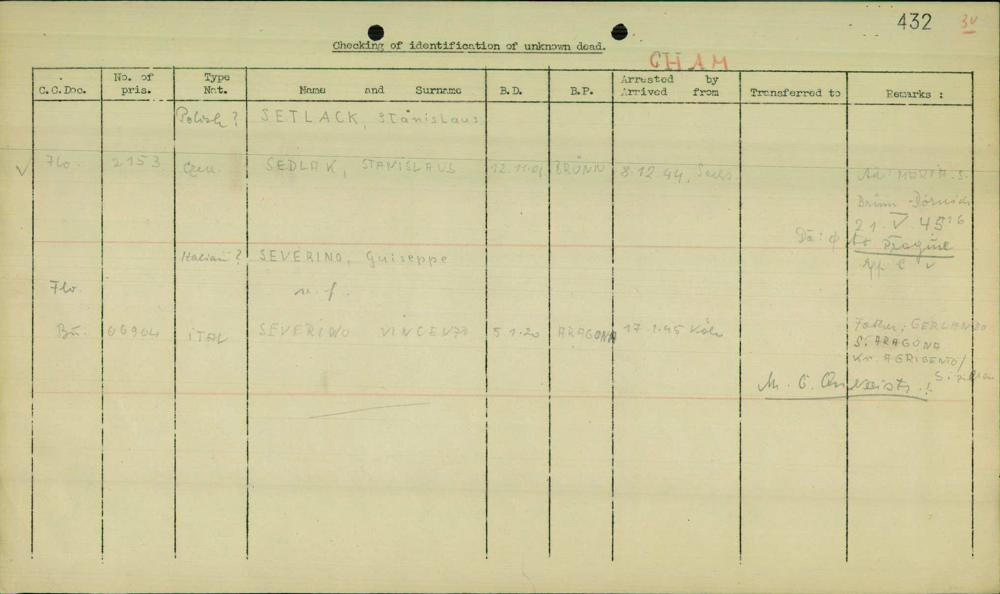 432
Checking of identification of unknown dead.
CHAM
C.C.Doc. No. of pris. Type Nat. Name and Surname B.D. B.P. Arrested by Arrived from Transferred to Remarks :
Polish? SETLACK, Stanislaus
Flo. 2153 Czech. SEDLAK, STANISLAUS 12.11.01 BRÜNN 8.12.44, Sachs
MERTA.S.
Brünn
21. V 45
to Prague
Italian? SEVERINO, Guiseppe
Flo. n. f.
Bu. 06904 ITAL SEVERINO VINCENZO 5.1.20 ARAGONA 17.1.45 Köln Father: GERLANDO
S. ARAGONA
Kr. AGRIGENTO/
Sizilian